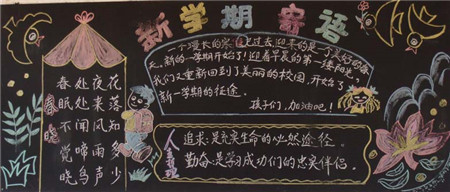 新学期寄语
一个漫长的寒假已过去,迎来的是一个美好的春
天,新的一学期开始了!迎着早晨的第一缕阳光,
我们又重新回到了美丽的校园,开始了
新一学期的征途。
孩子们,加油吧!
春晓
春眠不觉晓
处处闻啼鸟
夜来风雨声
花落知多少
追求:是充实生命的必然途径。
勤奋:是学习成功们的忠实伴侣。